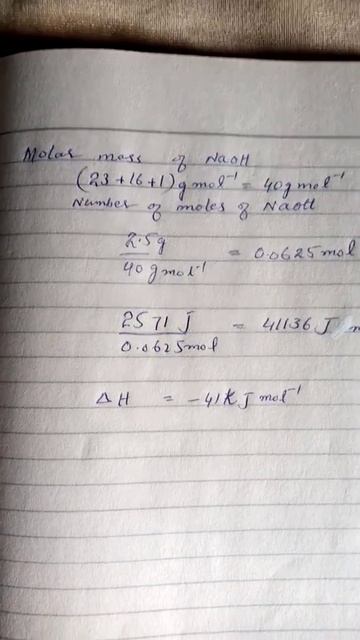 Molar mass of NaOH
(23+16+1) g mol⁻¹ = 40 g mol⁻¹
Number of moles of NaOH
2.5g / 40 g mol⁻¹ = 0.0625 mol
2571 J / 0.0625 mol = 41136 J
ΔH = -41 KJ mol⁻¹